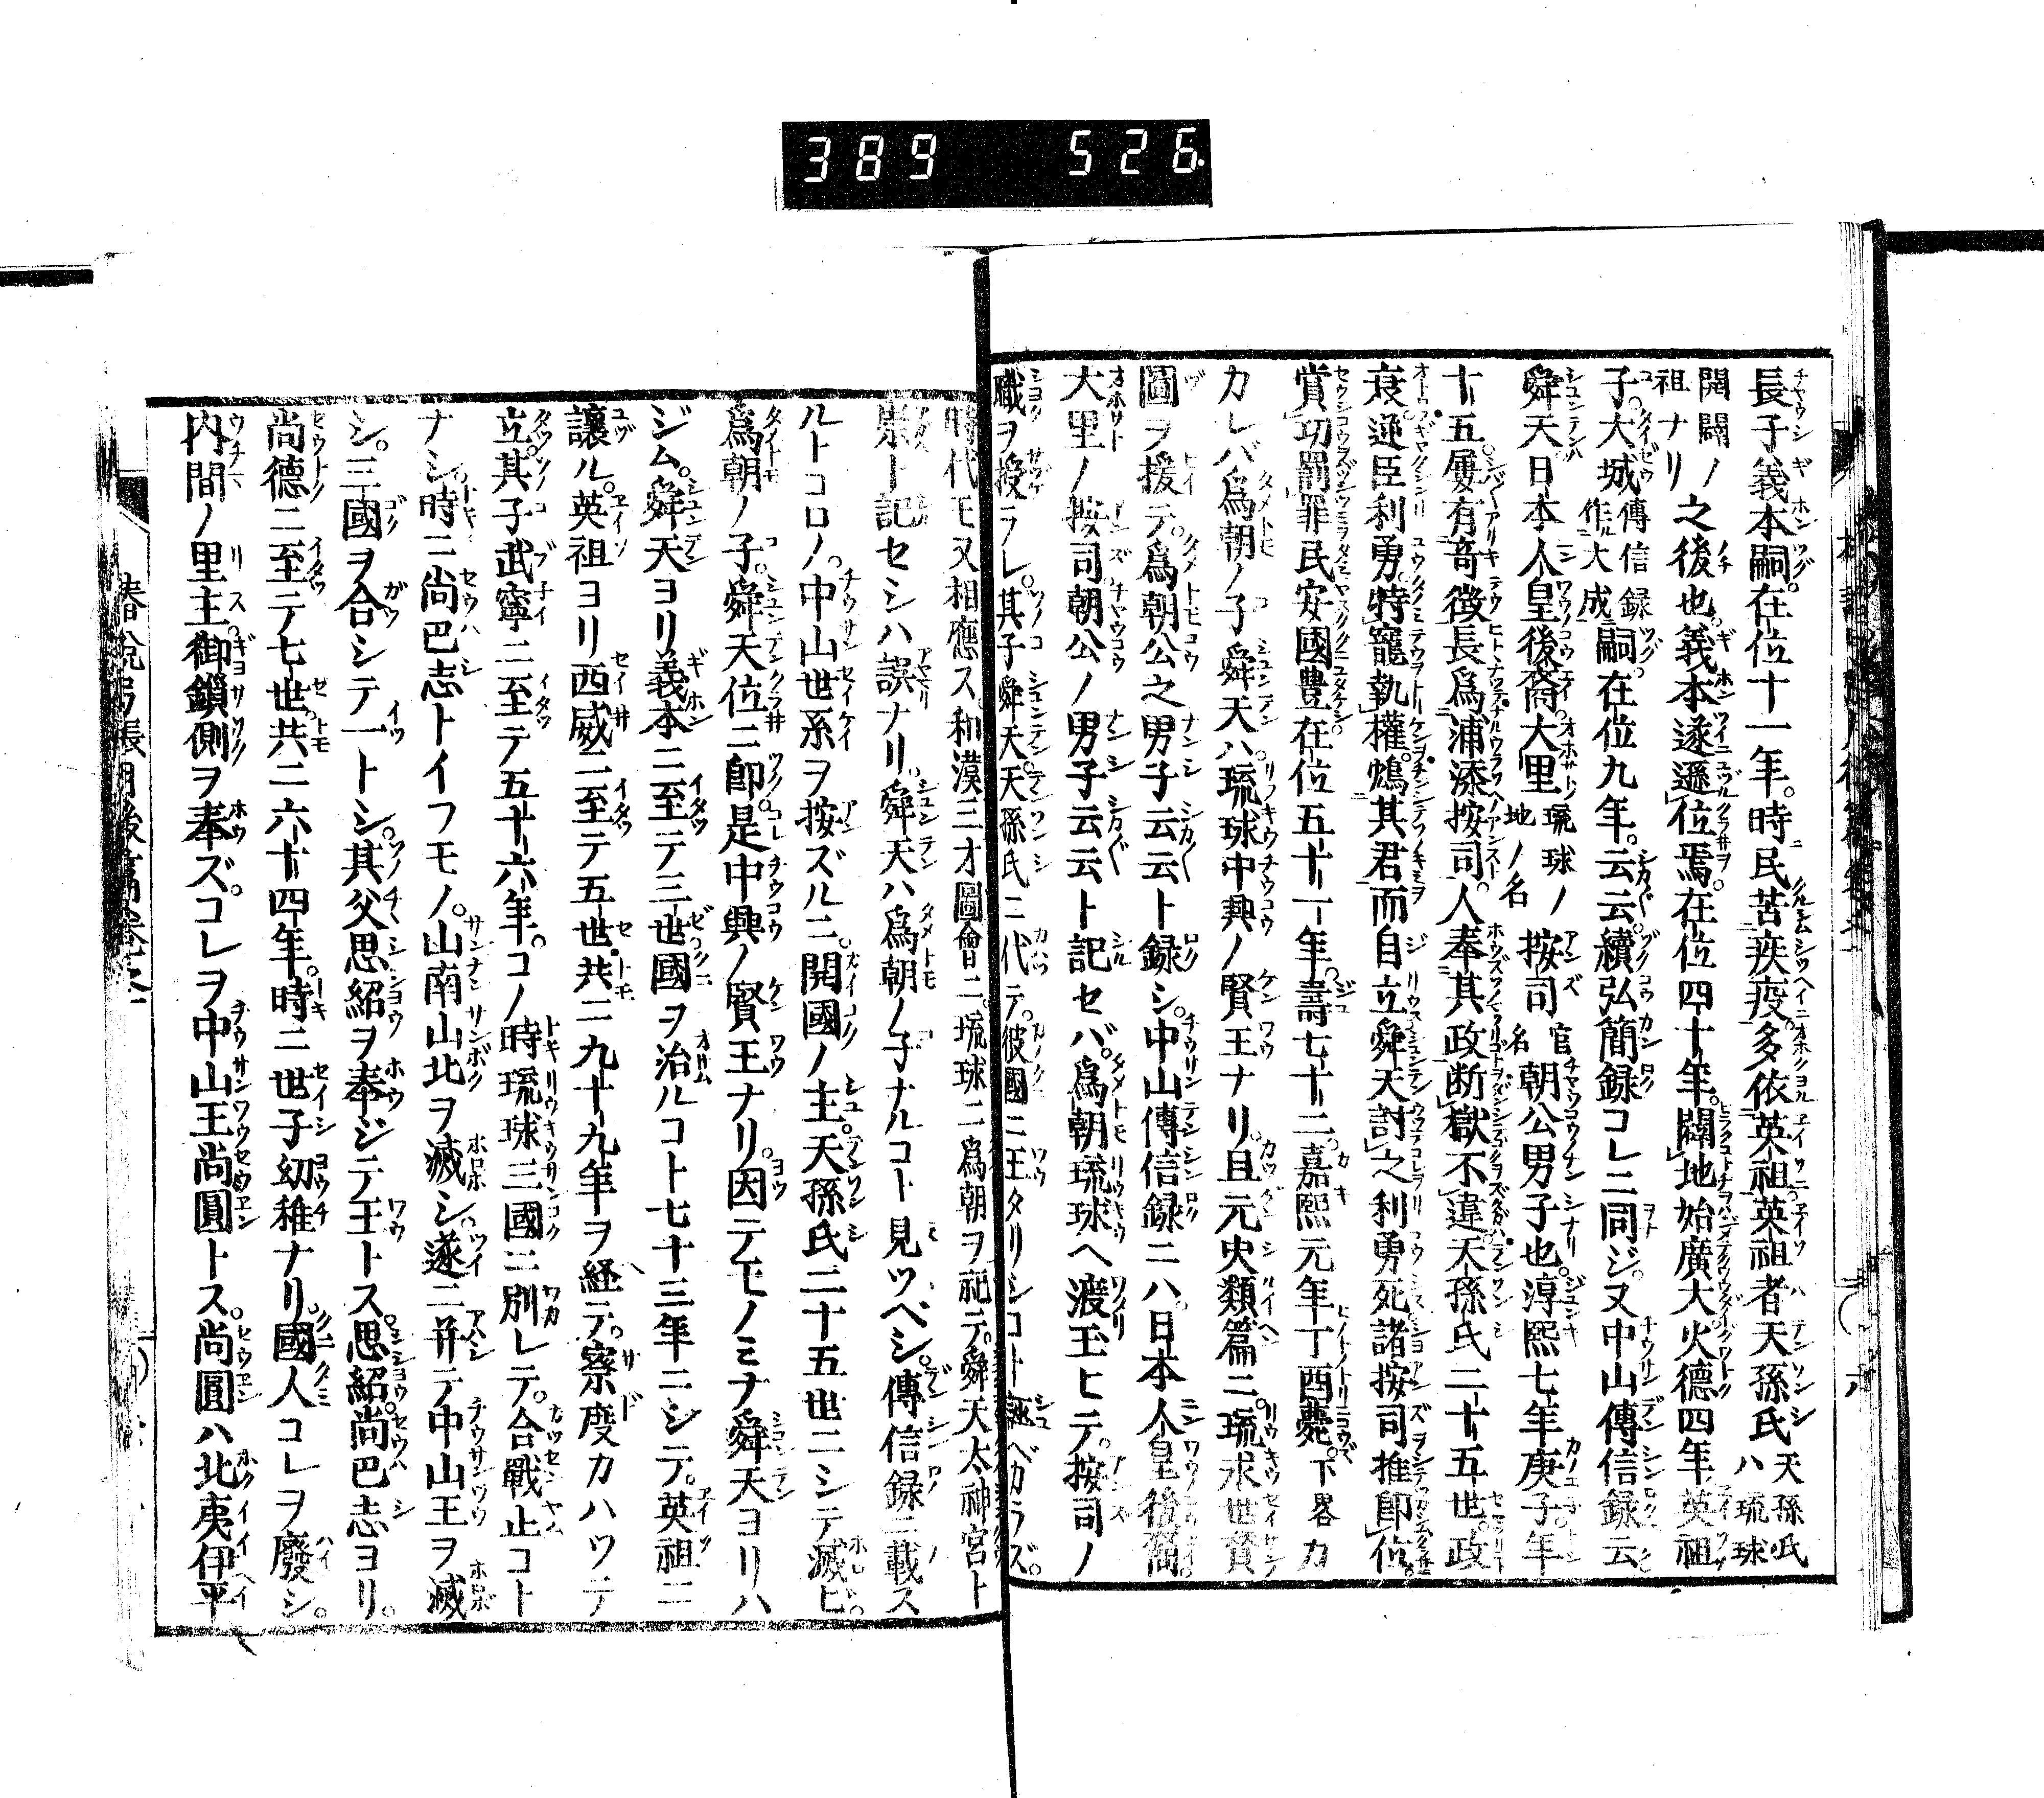 389 526
長子義本嗣。在位十一年。時民苦疾疫。多依英祖。英祖者天孫氏天孫氏ハ琉球
開闢ノ祖ナリ之後也。義本遂遜位焉。在位四十年。闢地始廣大火德四年英祖
子。大城傳信録作大成嗣。在位九年。云云。續弘簡録コレニ同ジ。又中山傳信録云
舜天日本人皇後裔。大里琉球ノ地ノ名按司官名朝公男子也。淳熙七年庚子年
十五。屢有竒徴長爲浦添按司。人奉其政断獄不違。天孫氏二十五世。政
衰。逆臣利勇。特寵執權。鴆其君而自立舜天討之利勇死諸按司推即位。
賞功罰罪民安國豊在位五十一年。壽七十二。嘉熙元年丁酉薨。下畧カ
カレバ爲朝ノ子舜天ハ。琉球中興ノ賢王ナリ。且元史類篇ニ。琉求世賛
圖ヲ援テ。爲朝公之男子云云ト録シ。中山傳信録ニハ。日本人皇後裔
大里ノ按司朝公ノ男子云云ト記セバ。爲朝琉球ヘ渡玉ヒテ。按司ノ
職ヲ授ラレ。其子舜天。天孫氏ニ代テ。彼國ニ王タリシコト誣ベカラズ。
時代モ又相應ス和漢三才圖會ニ。琉球ニ爲朝ヲ祀テ。舜天太神宮ト
崇ト記セシハ誤ナリ。舜天ハ爲朝ノ子ナルコト見ツベシ。傳信録ニ載ス
ルトコロノ。中山世系ヲ按ズルニ。開國ノ主天孫氏二十五世ニシテ滅ビ。
爲朝ノ子。舜天位ニ即。是中興ノ賢王ナリ。因テモノミナ舜天ヨリハ
ジム。舜天ヨリ義本ニ至テ三世國ヲ治ルコト七十三年ニシテ。英祖ニ
讓ル。英祖ヨリ西威ニ至テ五世共ニ九十九年ヲ経テ。察度カハツテ
立。其子武寧ニ至テ五十六年。コノ時琉球三國ニ別レテ。合戰止コト
ナシ。時ニ尚巴志トイフモノ。山南山北ヲ滅シ。遂ニ并テ中山王ヲ滅
シ。三國ヲ合シテ一トシ。其父思紹ヲ奉ジテ王トス。思紹。尚巴志ヨリ。
尚德ニ至テ七世共ニ六十四年。時ニ世子幼稚ナリ。國人コレヲ廢シ。
内間ノ里主。御鎖側ヲ奉ズ。コレヲ中山王尚圓トス。尚圓ハ北夷伊平
椿説弓張月後篇卷之